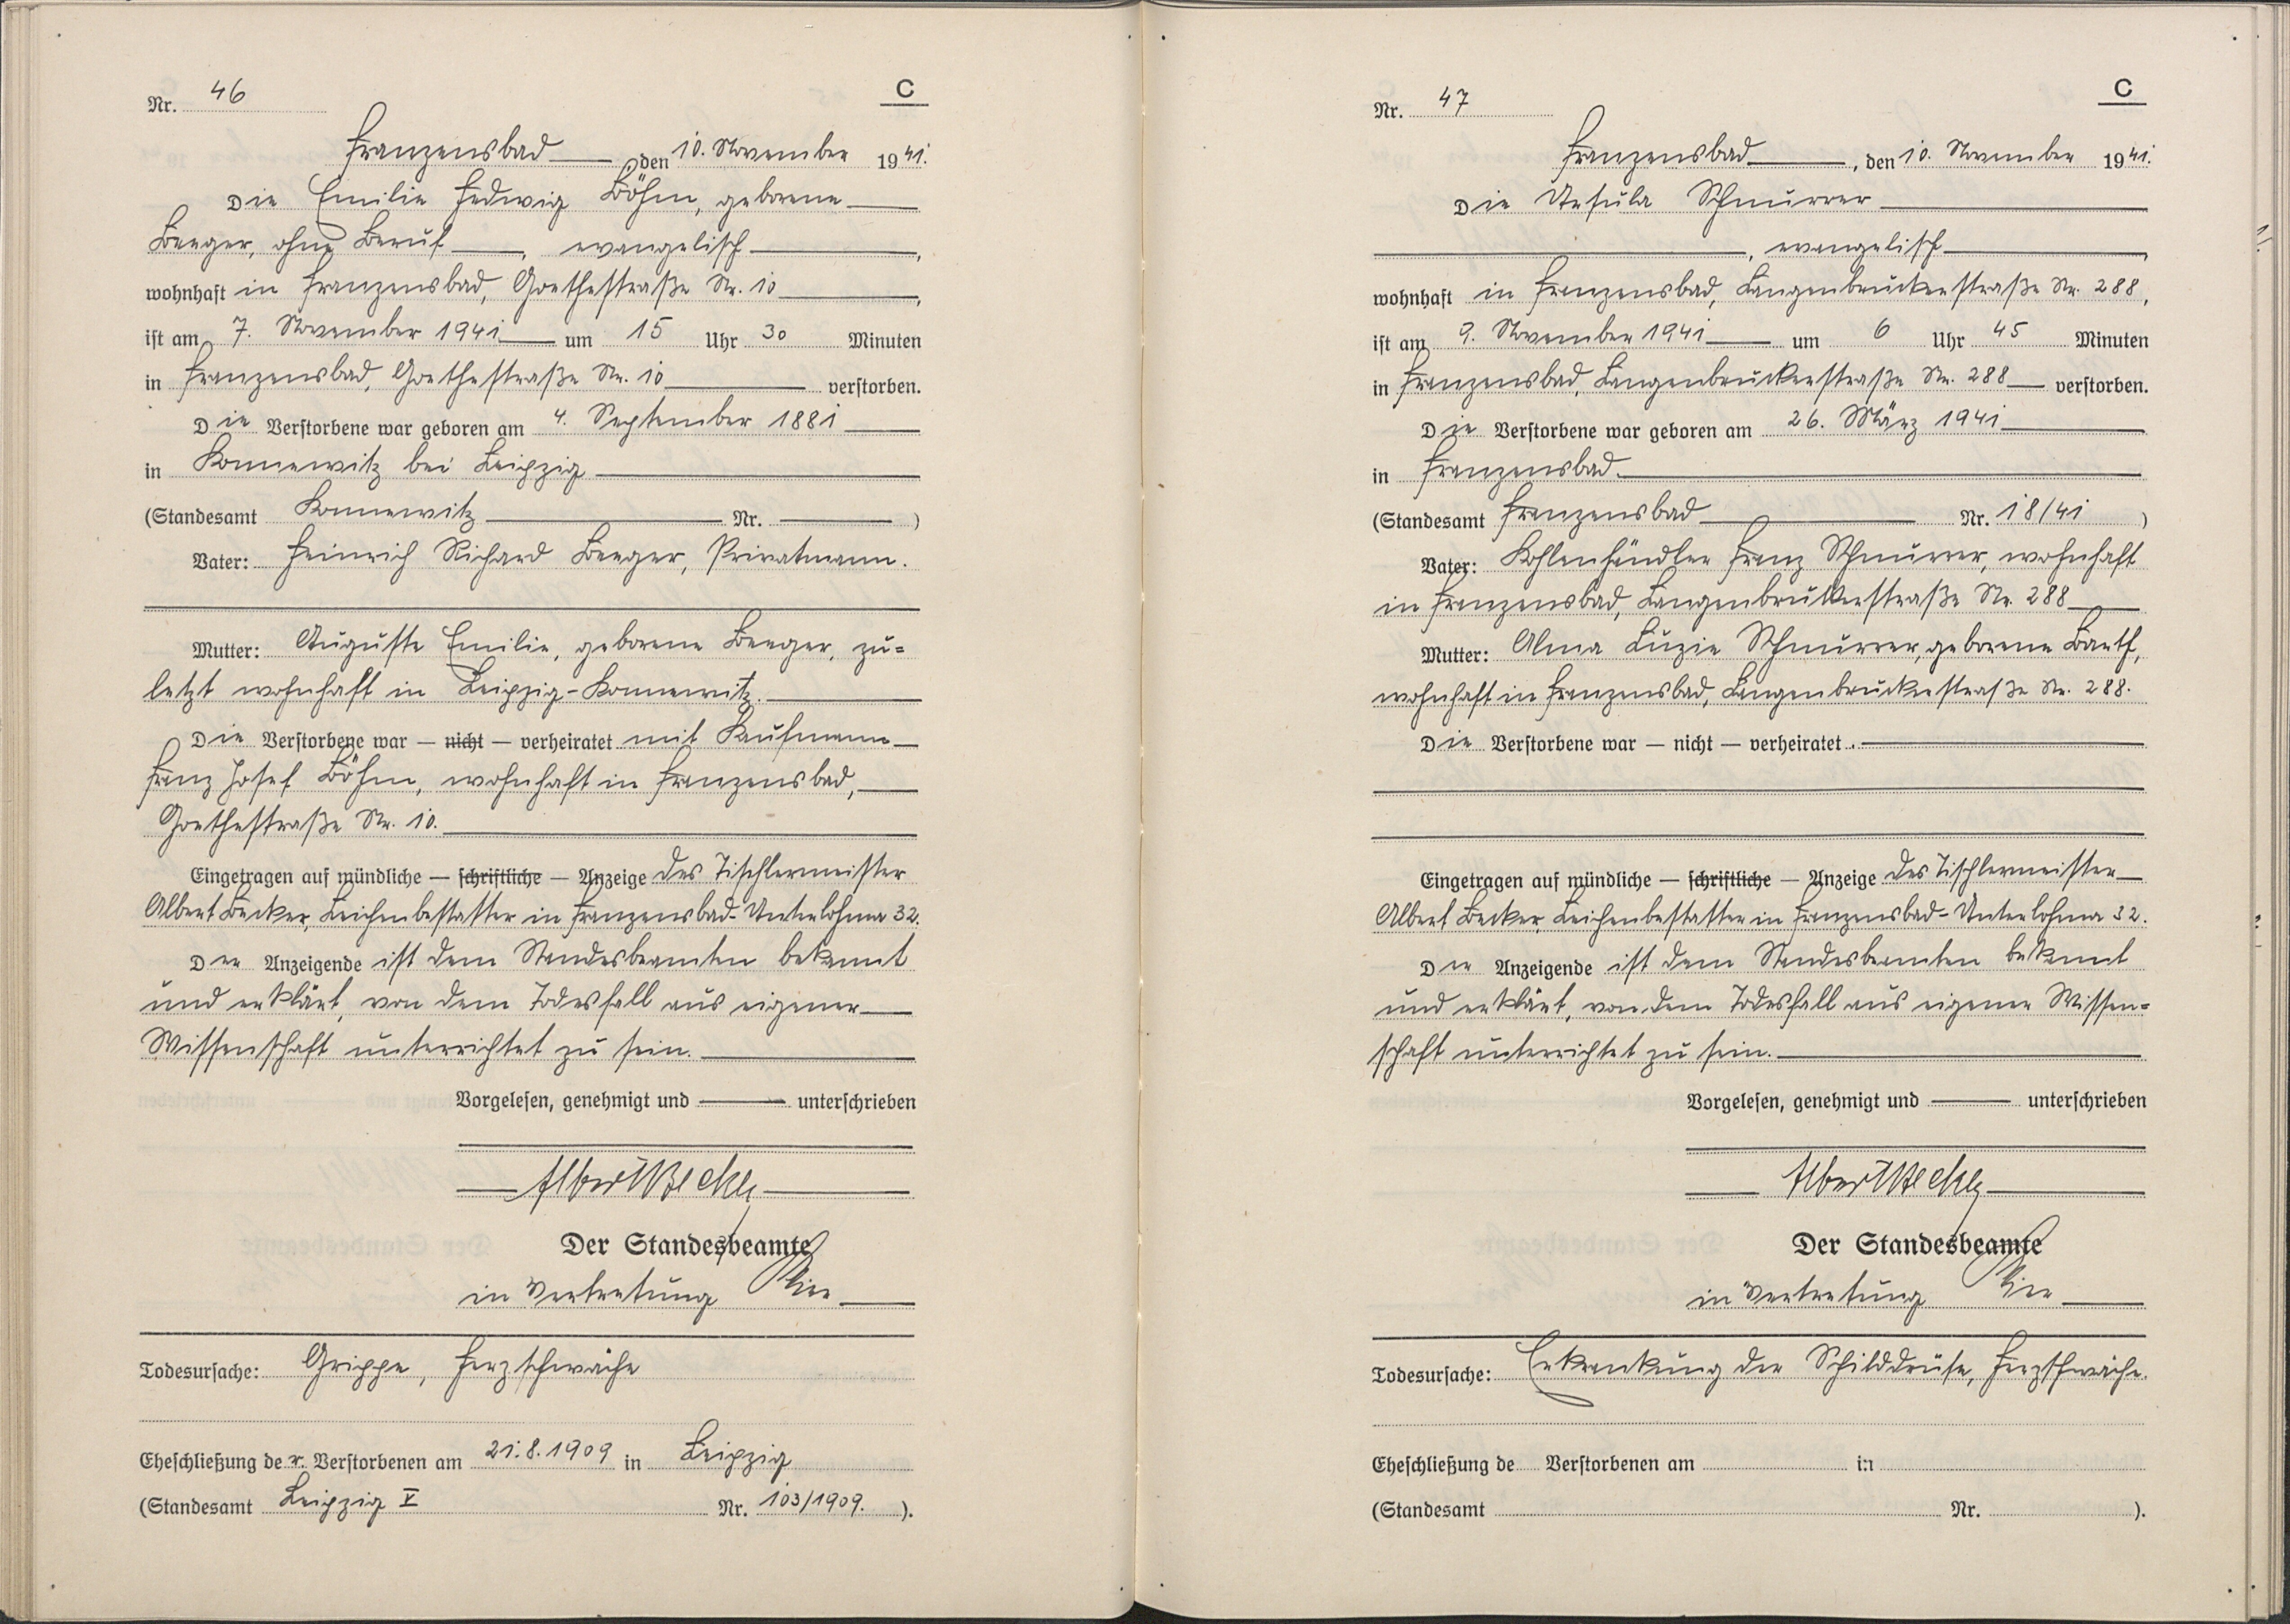 Nr. 46
C
Franzensbad, den 10. November 1941.
Die Emilie Hedwig Böhm, geborene
Beeger, ohne Beruf, evangelisch,
wohnhaft in Franzensbad, Goethestraße Nr. 10,
ist am 7. November 1941 um 15 Uhr 30 Minuten
in Franzensbad, Goethestraße Nr. 10 verstorben.
Die Verstorbene war geboren am 4. September 1881
in Konnewitz bei Leipzig
(Standesamt Konnewitz Nr. )
Vater: Heinrich Richard Beeger, Privatmann.
Mutter: Auguste Emilie, geborene Beeger, zu=
letzt wohnhaft in Leipzig-Konnewitz.
Die Verstorbene war — nicht — verheiratet mit Kaufmann
Franz Josef Böhm, wohnhaft in Franzensbad,
Goethestraße Nr. 10.
Eingetragen auf mündliche — schriftliche — Anzeige des Tischlermeister
Albert Becker, Leichenbestatter in Franzensbad-Unterlohma 32.
Der Anzeigende ist dem Standesbeamten bekannt
und erklärt, von dem Todesfall aus eigener
Wissenschaft unterrichtet zu sein.
Vorgelesen, genehmigt und unterschrieben
Albert Becker
Der Standesbeamte
in Vertretung
Todesursache: Grippe, Herzschwäche
Eheschließung der Verstorbenen am 21.8.1909 in Leipzig
(Standesamt Leipzig V Nr. 103/1909. ).
Nr. 47
C
Franzensbad, den 10. November 1941.
Die Ursula Schnurrer
, evangelisch,
wohnhaft in Franzensbad, Langenbruckerstraße Nr. 288,
ist am 9. November 1941 um 6 Uhr 45 Minuten
in Franzensbad, Langenbruckerstraße Nr. 288 verstorben.
Die Verstorbene war geboren am 26. März 1941
in Franzensbad.
(Standesamt Franzensbad Nr. 18/41 )
Vater: Kohlenhändler Franz Schnurrer, wohnhaft
in Franzensbad, Langenbruckerstraße Nr. 288
Mutter: Alma Luzie Schnurrer, geborene Barth,
wohnhaft in Franzensbad, Langenbruckerstraße Nr. 288.
Die Verstorbene war — nicht — verheiratet.
Eingetragen auf mündliche — schriftliche — Anzeige des Tischlermeister
Albert Becker, Leichenbestatter in Franzensbad-Unterlohma 32.
Der Anzeigende ist dem Standesbeamten bekannt
und erklärt, von dem Todesfall aus eigener Wissen=
schaft unterrichtet zu sein.
Vorgelesen, genehmigt und unterschrieben
Albert Becker
Der Standesbeamte
in Vertretung
Todesursache: Erkrankung der Schilddrüse, Herzschwäche.
Eheschließung de Verstorbenen am in
(Standesamt Nr. ).